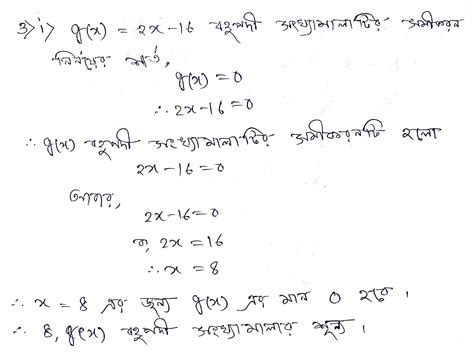 3>i> g(x) = 2x-16 বহুপদী সংখ্যামালাটির সমীকরন
নির্ণয়ের শর্ত,
g(x)=0
∴ 2x-16=0
∴ g(x) বহুপদী সংখ্যামালাটির সমীকরনটি হলো
2x-16=0
আবার,
2x-16=0
বা, 2x=16
∴ x = 8
∴ x = 8 এর জন্য g(x) এর মান 0 হবে।
∴ 8, g(x) বহুপদী সংখ্যামালার শূন্য।